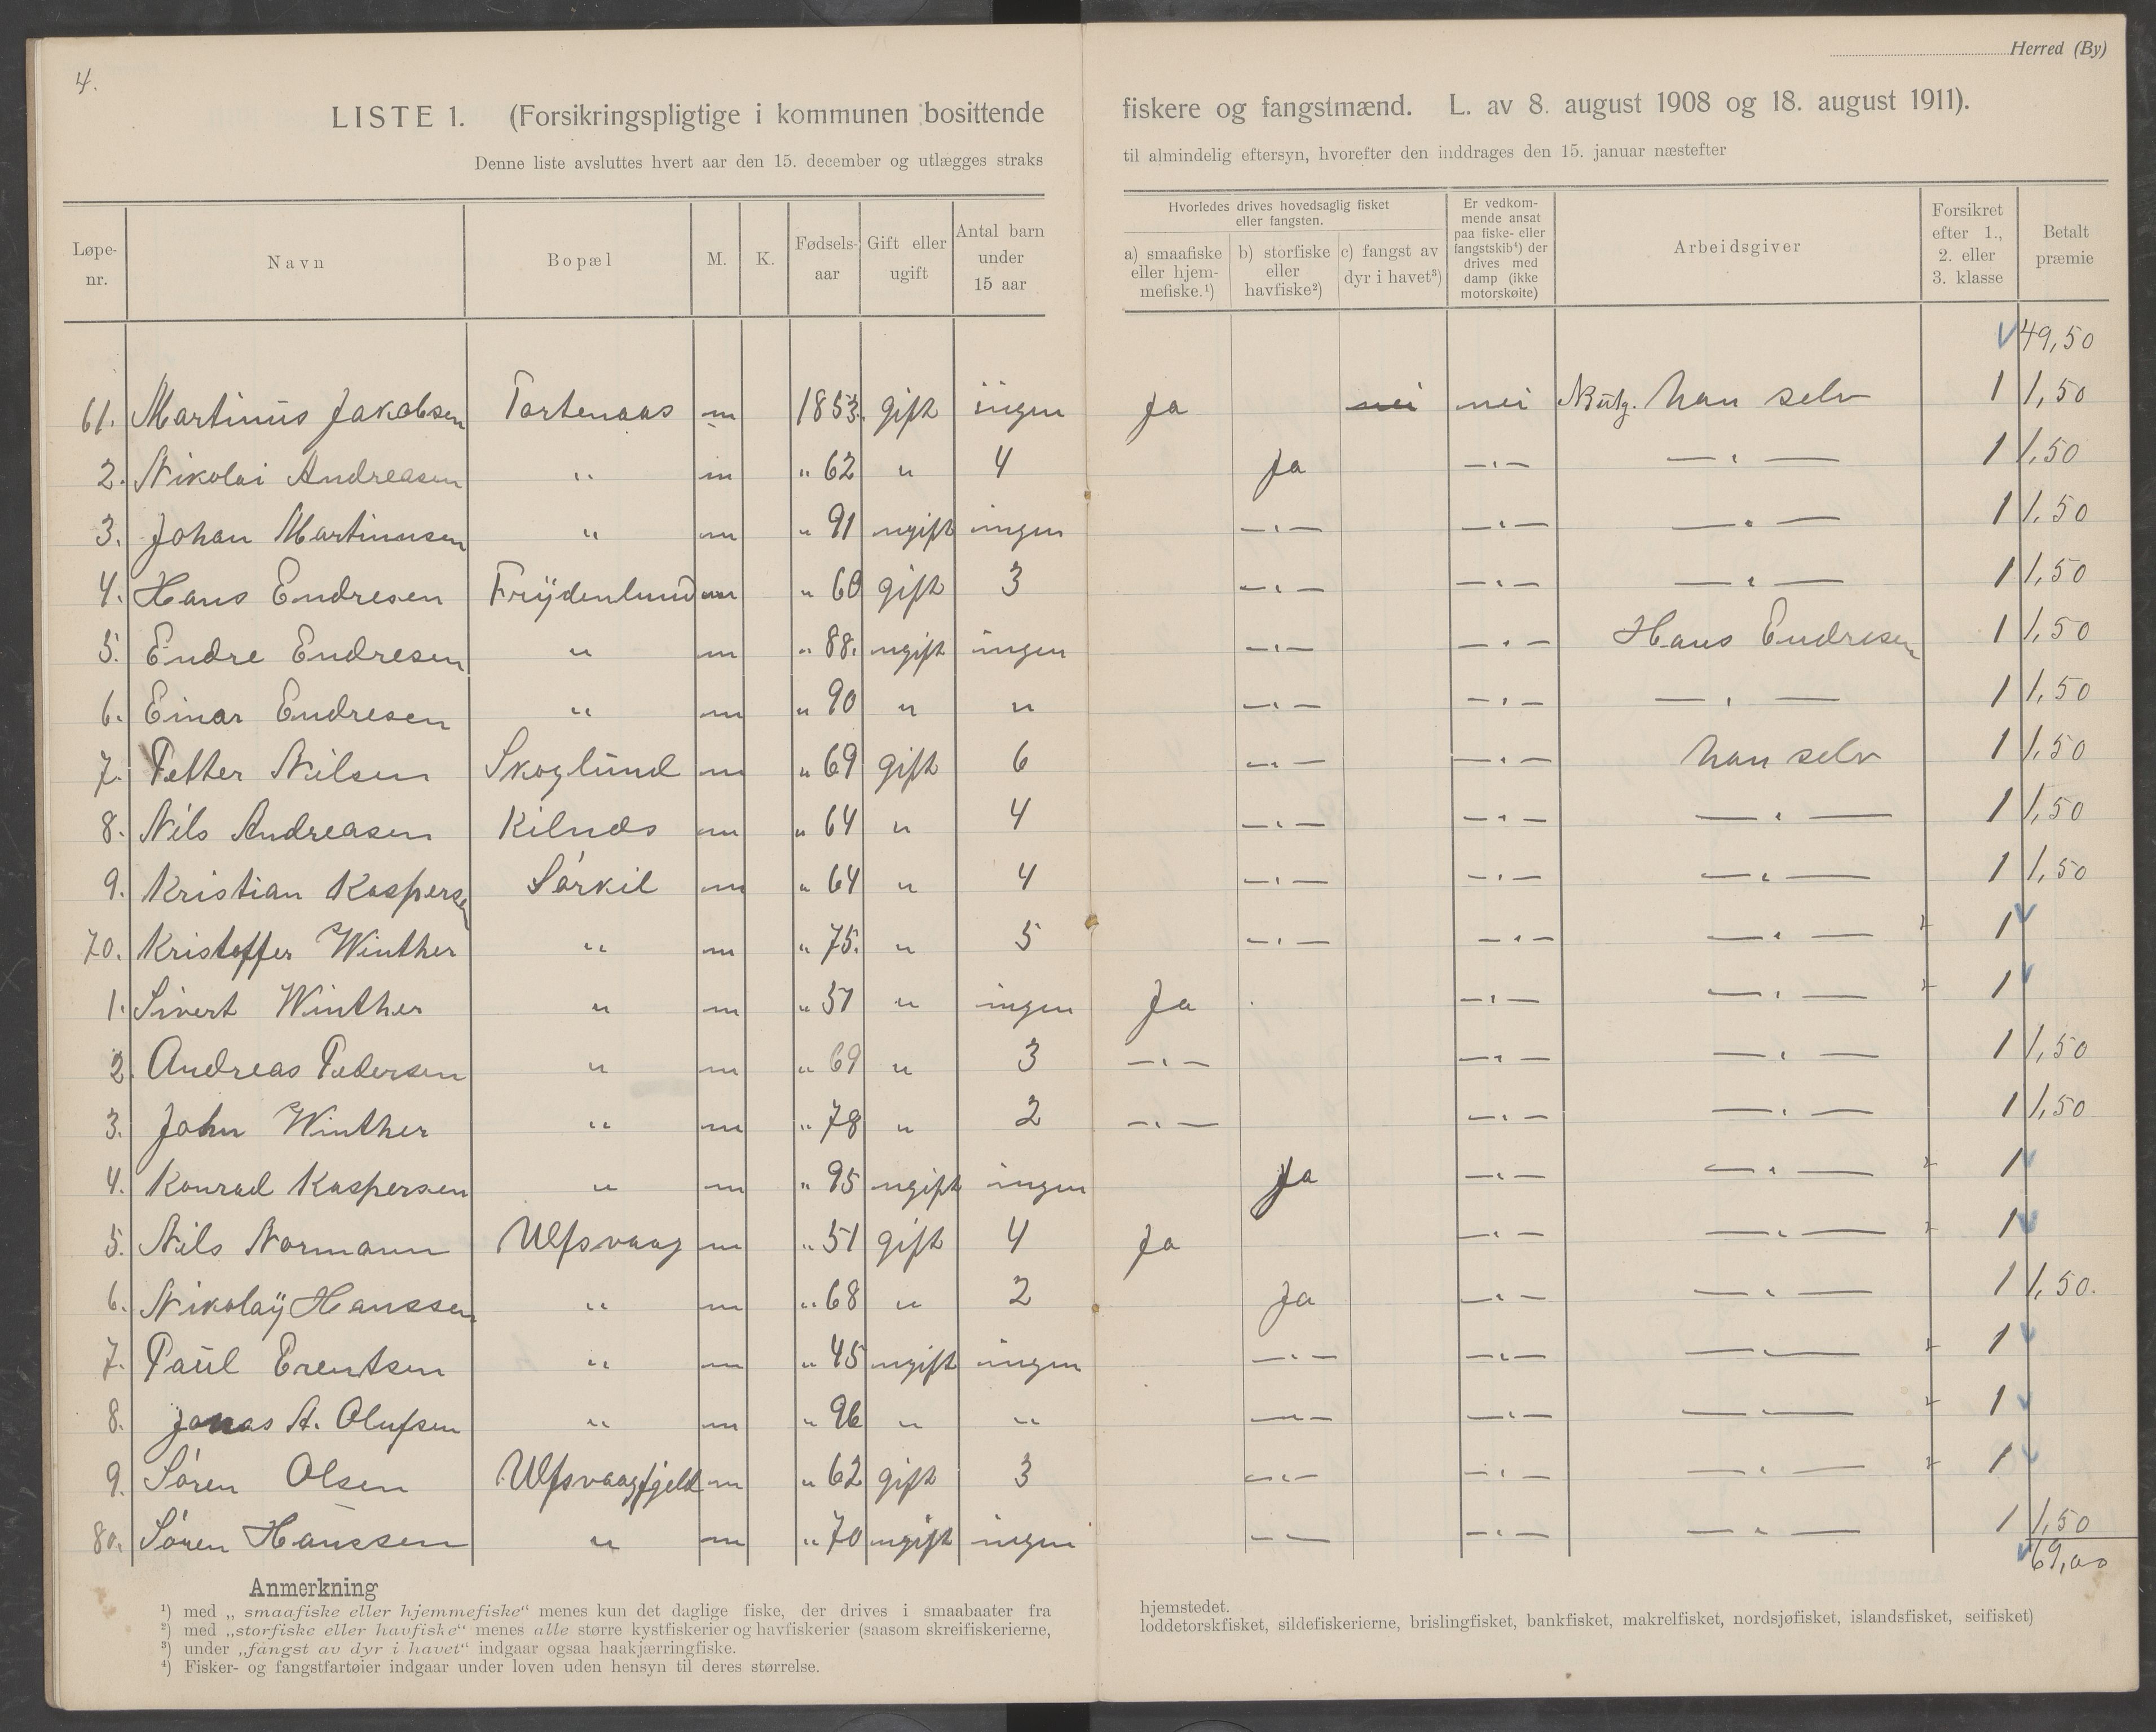 4.
Herred (By)
LISTE 1. (Forsikringspligtige i kommunen bosittende fiskere og fangstmænd. L. av 8. august 1908 og 18. august 1911).
Denne liste avsluttes hvert aar den 15. december og utlægges straks til almindelig eftersyn, hvorefter den inddrages den 15. januar næstefter
Løpe-nr. Navn Bopæl M. K. Fødsels-aar Gift eller ugift Antal barn under 15 aar Hvorledes drives hovedsaglig fisket eller fangsten. a) smaafiske eller hjem-mefiske.¹) b) storfiske eller havfiske²) c) fangst av dyr i havet³) Er vedkom-mende ansat paa fiske- eller fangstskib⁴) der drives med damp (ikke motorskøite) Arbeidsgiver Forsikret efter 1., 2. eller 3. klasse Betalt præmie
49,50
61. Martinus Jakobsen Tortenaas m 1853. gift ingen Ja nei nei han selv 1 1,50
2. Nikolai Andreasen " m " 62 " 4 Ja —"— —"— 1 1,50
3. Johan Martinusen " m " 91 ugift ingen —"— —"— —"— 1 1,50
4. Hans Endresen Frydenlund m " 60 gift 3 —"— —"— —"— 1 1,50
5. Endre Endresen " m " 88. ugift ingen —"— —"— Hans Endresen 1 1,50
6. Einar Endresen " m " 90 " " —"— —"— —"— 1 1,50
7. Petter Nilsen Skoglund m " 69 gift 6 —"— —"— han selv 1 1,50
8. Nils Andreasen Kilnæs m " 64 " 4 —"— —"— —"— 1 1,50
9. Kristian Kaspersen Sørkil m " 64 " 4 —"— —"— —"— 1 1,50
70. Kristoffer Winther " m " 75. " 5 —"— —"— —"— 1
1. Sivert Winther " m " 57 " ingen Ja —"— —"— 1
2. Andreas Pedersen " m " 69 " 3 —"— —"— —"— 1 1,50
3. John Winther " m " 78 " 2 —"— —"— —"— 1 1,50
4. Konrad Kaspersen " m " 95 ugift ingen Ja —"— —"— 1
5. Nils Normann Ulfsvaag m " 51 gift 4 Ja —"— —"— 1
6. Nikolaÿ Hanssen " m " 68 " 2 Ja —"— —"— 1 1,50.
7. Paul Erentsen " m " 45 ugift ingen —"— —"— —"— 1
8. Jonas A. Olufsen " m " 96 " " —"— —"— —"— 1
9. Søren Olsen Ulfsvaagfjeld m " 62 gift 3 —"— —"— —"— 1
80. Søren Hanssen " m " 70 ugift ingen —"— —"— —"— 1 1,50
69,00
Anmerkning
¹) med „smaafiske eller hjemmefiske“ menes kun det daglige fiske, der drives i smaabaater fra hjemstedet.
²) med „storfiske eller havfiske“ menes alle større kystfiskerier og havfiskerier (saasom skreifiskerierne, loddetorskfisket, sildefiskerierne, brislingfisket, bankfisket, makrelfisket, nordsjøfisket, islandsfisket, seifisket)
³) under „fangst av dyr i havet“ indgaar ogsaa haakjærringfiske.
⁴) Fisker- og fangstfartøier indgaar under loven uden hensyn til deres størrelse.